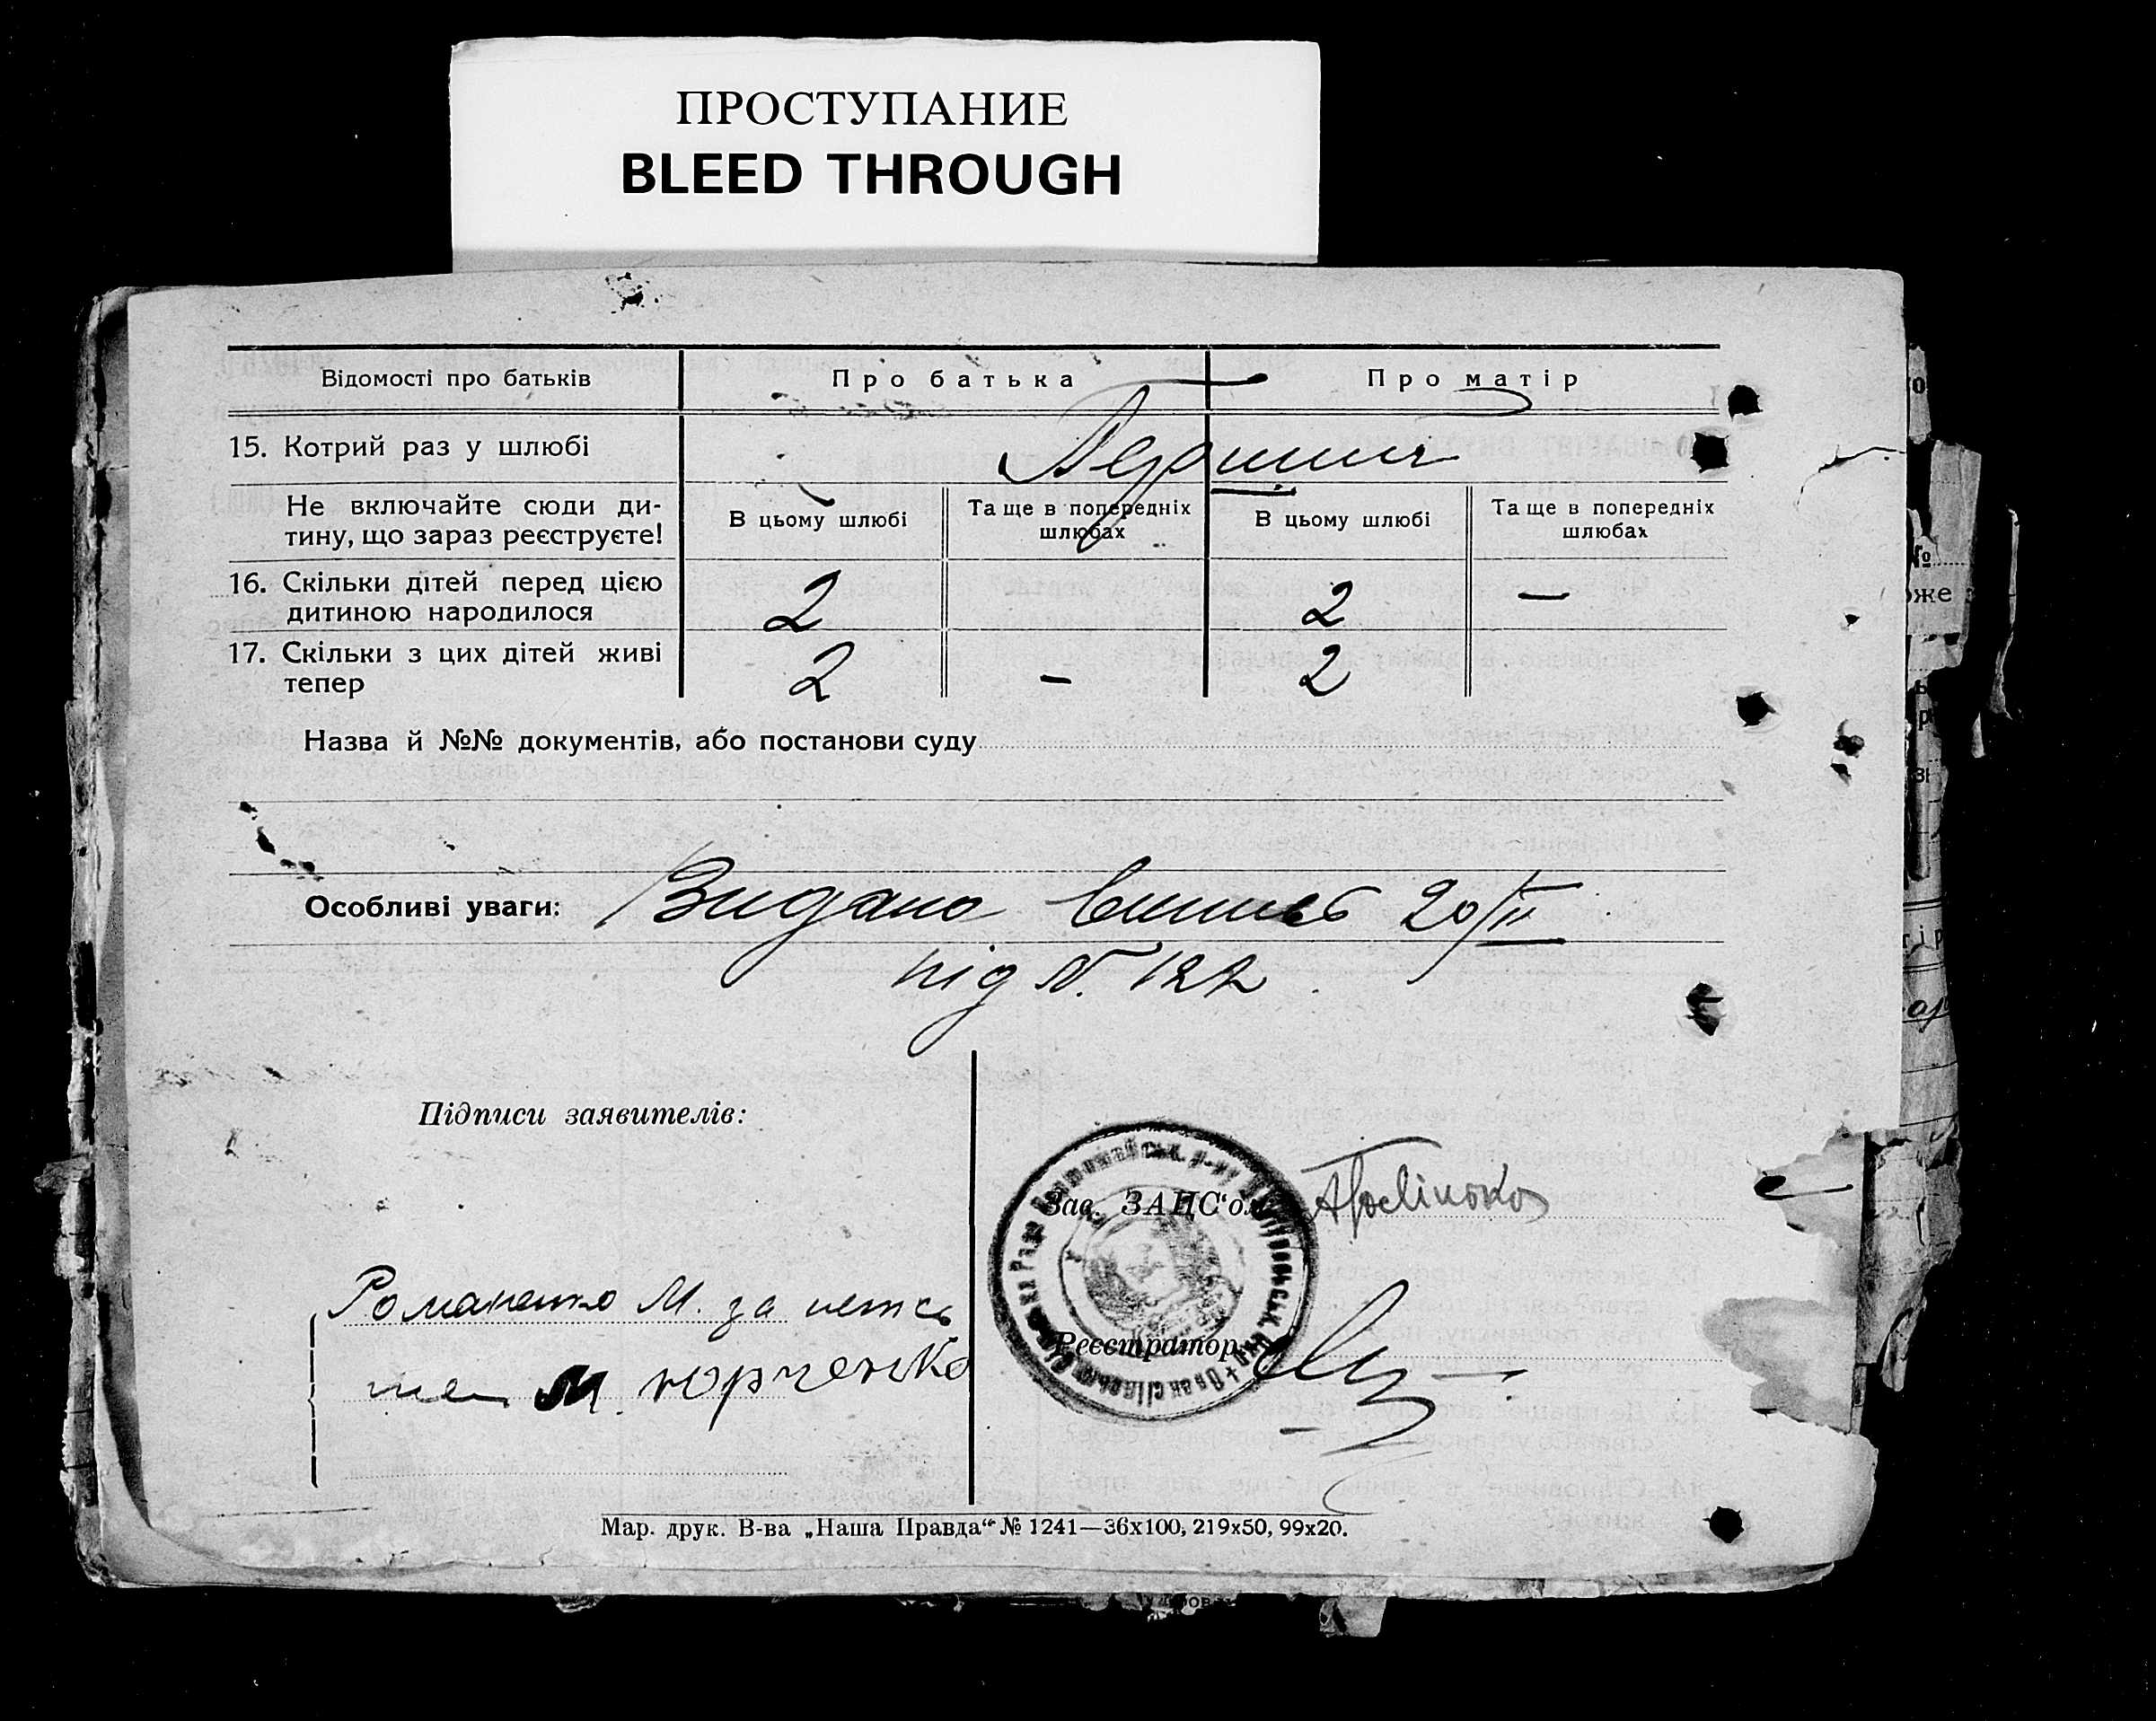 ПРОСТУПАНИЕ
BLEED THROUGH
Відомості про батьків
Про батька
Про матір
15. Котрий раз у шлюбі
Не включайте сюди ди-
тину, що зараз реєструєте!
В цьому шлюбі
Та ще в попередніх
шлюбах
В цьому шлюбі
Та ще в попередніх
шлюбах
16. Скільки дітей перед цією
дитиною народилося
2
2 —
17. Скільки з цих дітей живі
тепер
2 —
2
Назва й №№ документів, або постанови суду
Особливі уваги: Видано 20/II
під N. 122
Підписи заявителів:
Зав. ЗАЦС'ом
Романенко М. за
М. юрченко
Реєстратор
Мар. друк. В-ва „Наша Правда“ № 1241—36х100, 219х50, 99х20.